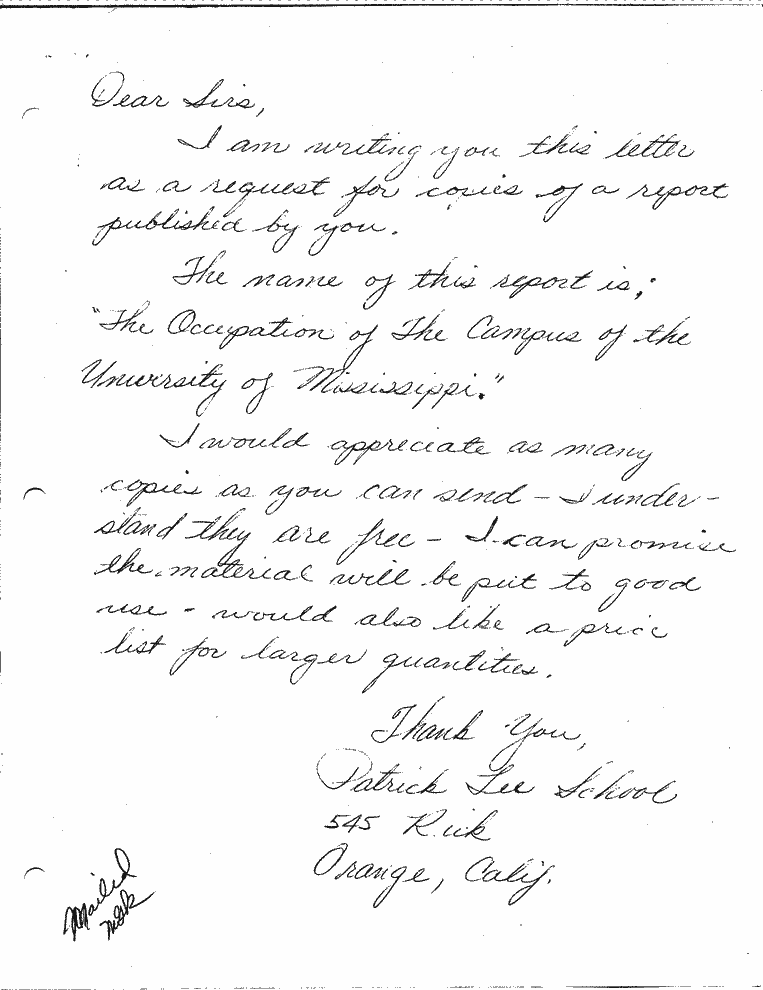 Dear Sirs,
I am writing you this letter
as a request for copies of a report
published by you.
The name of this report is;
"The Occupation of The Campus of the
University of Mississippi."
I would appreciate as many
copies as you can send - I under-
stand they are free - I can promise
the material will be put to good
use - would also like a price
list for larger quantities.
Thank You,
Patrick Lee School
545 Rick
Orange, Calif.
Mailed